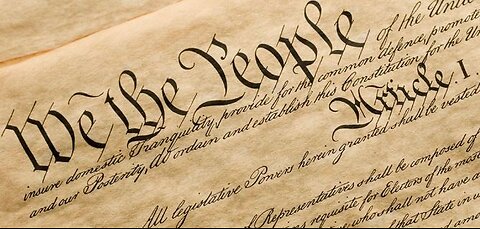 We the People
of the Unite
insure domestic Tranquility, provide for the common defence, promote
and our Posterity, do ordain and establish this Constitution for the Uni
Article. I.
All legislative Powers herein granted shall be vested
of Representatives shall be composed of
requisite for Electors of the most
who shall not have a
of that State in w